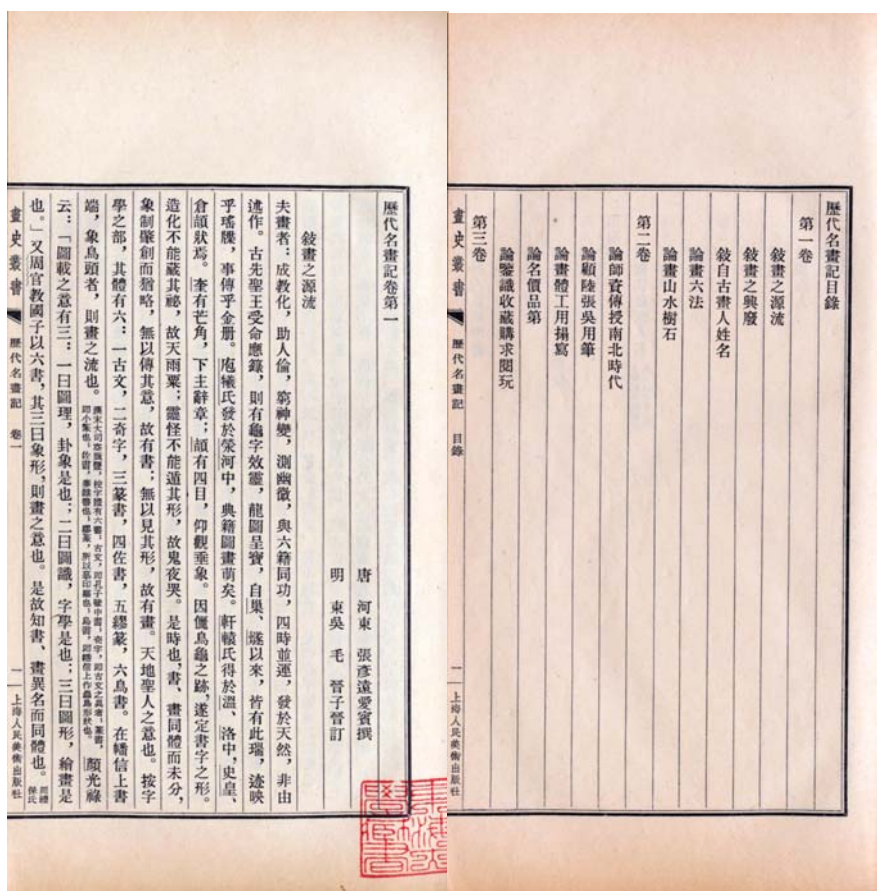 歷代名畫記目錄
第一卷
敍畫之源流
敍畫之興廢
敍自古畫人姓名
論畫六法
論畫山水樹石
第二卷
論師資傳授南北時代
論顧陸張吳用筆
論畫體工用搨寫
論名價品第
論鑒識收藏購求閱玩
第三卷
畫史叢書 歷代名畫記 目錄 一 上海人民美術出版社
歷代名畫記卷第一
唐 河東 張彥遠愛賓撰
明 東吳 毛 晉子晉訂
敍畫之源流
夫畫者：成教化，助人倫，窮神變，測幽微，與六籍同功，四時並運，發於天然，非由
述作。古先聖王受命應籙，則有龜字效靈，龍圖呈寶，自巢、燧以來，皆有此瑞，迹映
乎瑤牒，事傳乎金册。庖犧氏發於滎河中，典籍圖畫萌矣。軒轅氏得於溫、洛中，史皇、
倉頡狀焉。奎有芒角，下主辭章；頡有四目，仰觀垂象。因儷鳥龜之跡，遂定書字之形。
造化不能藏其祕，故天雨粟；靈怪不能遁其形，故鬼夜哭。是時也，書、畫同體而未分，
象制肇創而猶略，無以傳其意，故有書；無以見其形，故有畫。天地聖人之意也。按字
學之部，其體有六：一古文，二奇字，三篆書，四佐書，五繆篆，六鳥書。在幡信上書
端，象鳥頭者，則畫之流也。漢末大司空甄豐，校字體有六書：古文，即孔子壁中書；奇字，即古文之異者；篆書，即小篆也；佐書，秦隸書也；繆篆，所以摹印璽也；鳥書，即幡信上作蟲鳥形狀也。顏光祿
云：「圖載之意有三：一曰圖理，卦象是也；二曰圖識，字學是也；三曰圖形，繪畫是
也。」又周官教國子以六書，其三曰象形，則畫之意也。是故知書、畫異名而同體也。周禮保氏
畫史叢書 歷代名畫記 卷一 一 上海人民美術出版社